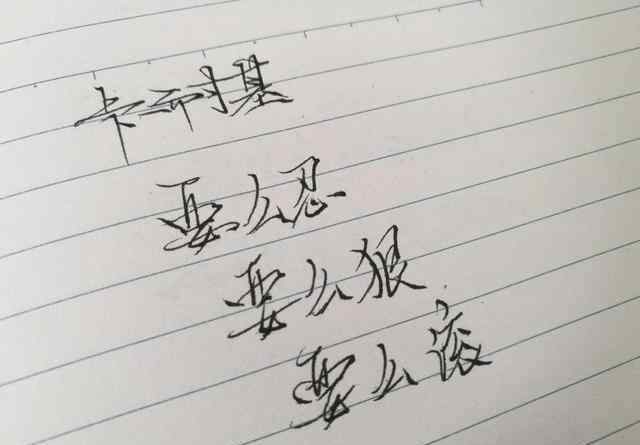 卡耐基
要么忍
要么狠
要么滚